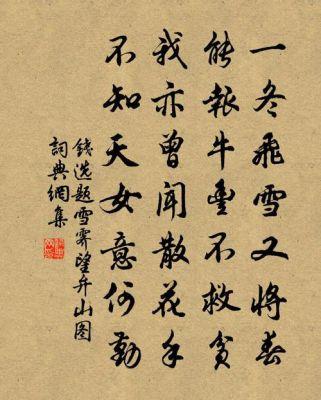 一冬飛雪又將春
能報年豐不救貧
我亦曾聞散花手
不知天女意何勤
錢選題雪霽望弁山图
詞典網集